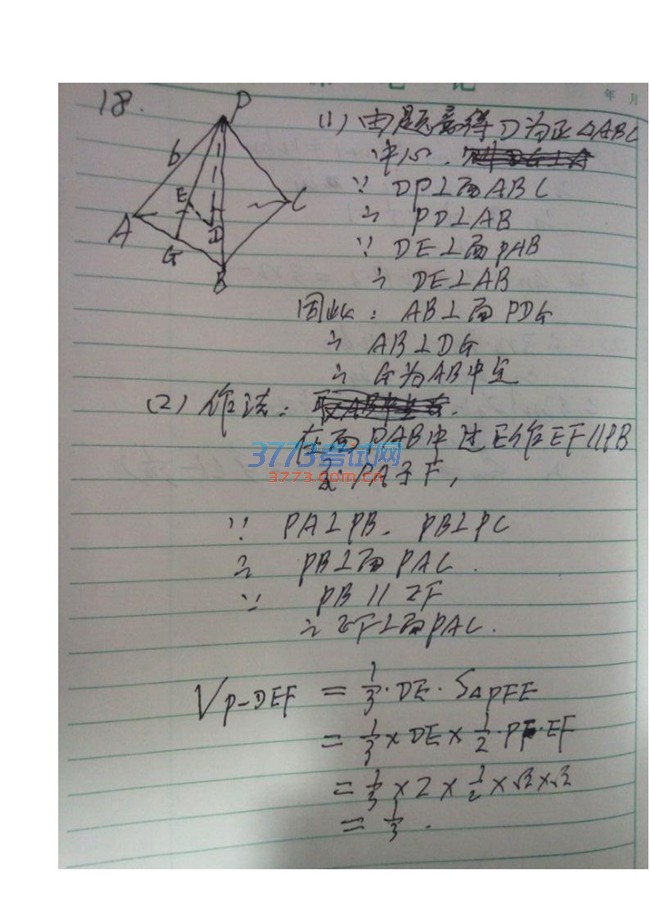 18.
P
6
E
A
C
D
G
B
(1) 由题意得D为正△ABC
中心.
∵ DP⊥面ABC
∴ PD⊥AB
∵ DE⊥面PAB
∴ DE⊥AB
因此: AB⊥面PDG
∴ AB⊥DG
∴ G为AB中点
(2) 作法:
在面PAB中过E作EF//PB
交PA于F,
3773考试网
3773.com.cn
∵ PA⊥PB. PB⊥PC
∴ PB⊥面PAC.
∵ PB // EF
∴ EF⊥面PAC.
V P-DEF = 1/3 · DE · S△PFE
= 1/3 × DE × 1/2 · PF · EF
= 1/3 × 2 × 1/2 × √2 × √2
= 1/3 .
年 月